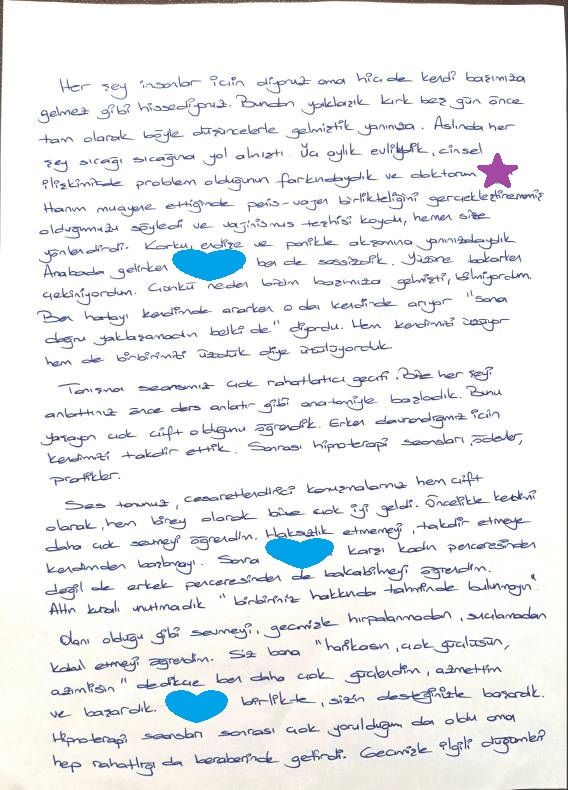 Her şey insanlar için diyoruz ama hiç de kendi başımıza
gelmez gibi hissediyoruz. Bundan yaklaşık kırk beş gün önce
tam olarak böyle düşüncelerle gelmiştik yanınıza. Aslında her
şey sıcağı sıcağına yol almıştı. Üç aylık evliydik, cinsel
ilişkimizde problem olduğunun farkındaydık ve doktorum
Hanım muayene ettiğinde penis-vajen birlikteliğini gerçekleştiremem
olduğumuzu söyledi ve vajinismus teşhisi koydu, hemen size
yönlendirdi. Korku, endişe ve panikle akşamına yanınızdaydık
Arabada gelirken ben de sessizdik. Yüzüne bakarken
çekiniyordum. Çünkü neden bizim başımıza gelmişti, bilmiyordum.
Ben hatayı kendimde ararken o da kendinde arıyor "sana
doğru yaklaşamadım belki de" diyordu. Hem kendimizi üzüyor
hem de birbirimizi üzdük diye üzülüyorduk.
Tanışma seansımız çok rahatlatıcı geçti. Bize her şeyi
anlattınız önce ders anlatır gibi anatomiyle başladık. Bunu
yaşayan çok çift olduğunu öğrendik. Erken davrandığımız için
kendimizi takdir ettik. Sonrası hipnoterapi seansları, ödevler,
pratikler.
Ses tonunuz, cesaretlendirici konuşmalarınız hem çift
olarak, hem birey olarak bize çok iyi geldi. Öncelikle kendimi
daha çok sevmeyi öğrendim. Haksızlık etmemeyi, takdir etmeye
kendimden başlamayı. Sonra karşı kadın penceresinden
değil de erkek penceresinden de bakabilmeyi öğrendim.
Altın kuralı unutmadık "birbiriniz hakkında tahminde bulunmayın".
Olanı olduğu gibi sevmeyi, geçmişle hırpalanmadan, suçlamadan
kabul etmeyi öğrendim. Siz bana "harikasın, çok güçlüsün,
azimlisin" dedikçe ben daha çok güçlendim, azmettim
ve başardık. birlikte, sizin desteğinizle başardık.
Hipnoterapi seansları sonrası çok yorulduğum da oldu ama
hep rahatlığı da beraberinde getirdi. Geçmişle ilgili düğümleri